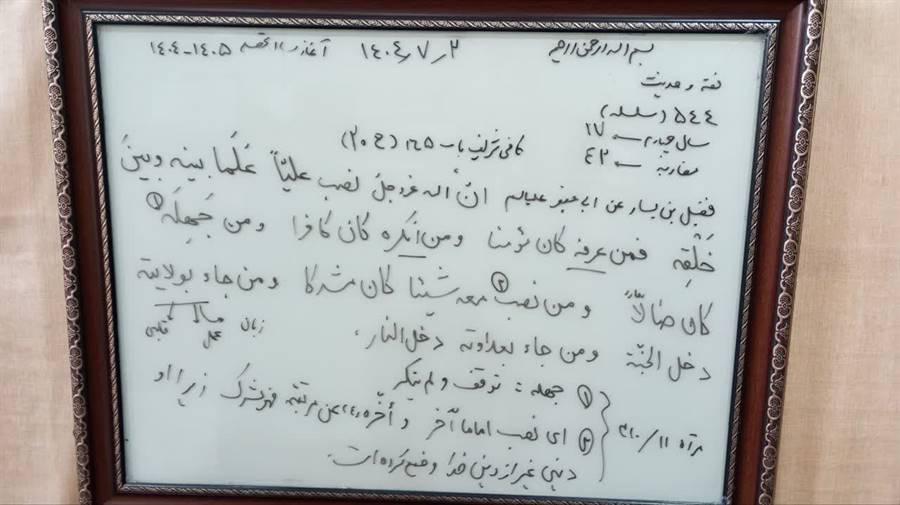 بسم الله الرحمن الرحیم ۱۴۰۴٫۷٫۲ آغاز ۱۴۰۵-۱۴۰۴
فقه و حدیث
۵۴۴ (سلسله)
سال چهارم ← ۱۷
مقارنه ← ۴۲ کافی شریف باب ۱۶۵ (ح ۲۰)
فضیل بن یسار عن ابی جعفر علیه‌السلام انّ الله عزوجل نصب علیّاً عَلَما بینه وبینَ
خَلْقِه فمن عرفه کان مؤمنا ومن انکره کان کافرا ومن جَهِلَه ①
کان ضالاًّ ومن نصب ② معه شیئا کان مشرکا ومن جاء بولایته
دخل الجنّة ومن جاء بعداوته دخل النار. زبان عمل قلبی
مرآه ۱۱ / ۳۱۰ ① جهله: توقف ولم ینکر
② ای نصب اماما آخر و أخّره (ع) عن مرتبته فهو مشرک زیرا او
دینی غیر از دین خدا وضع کرده است.